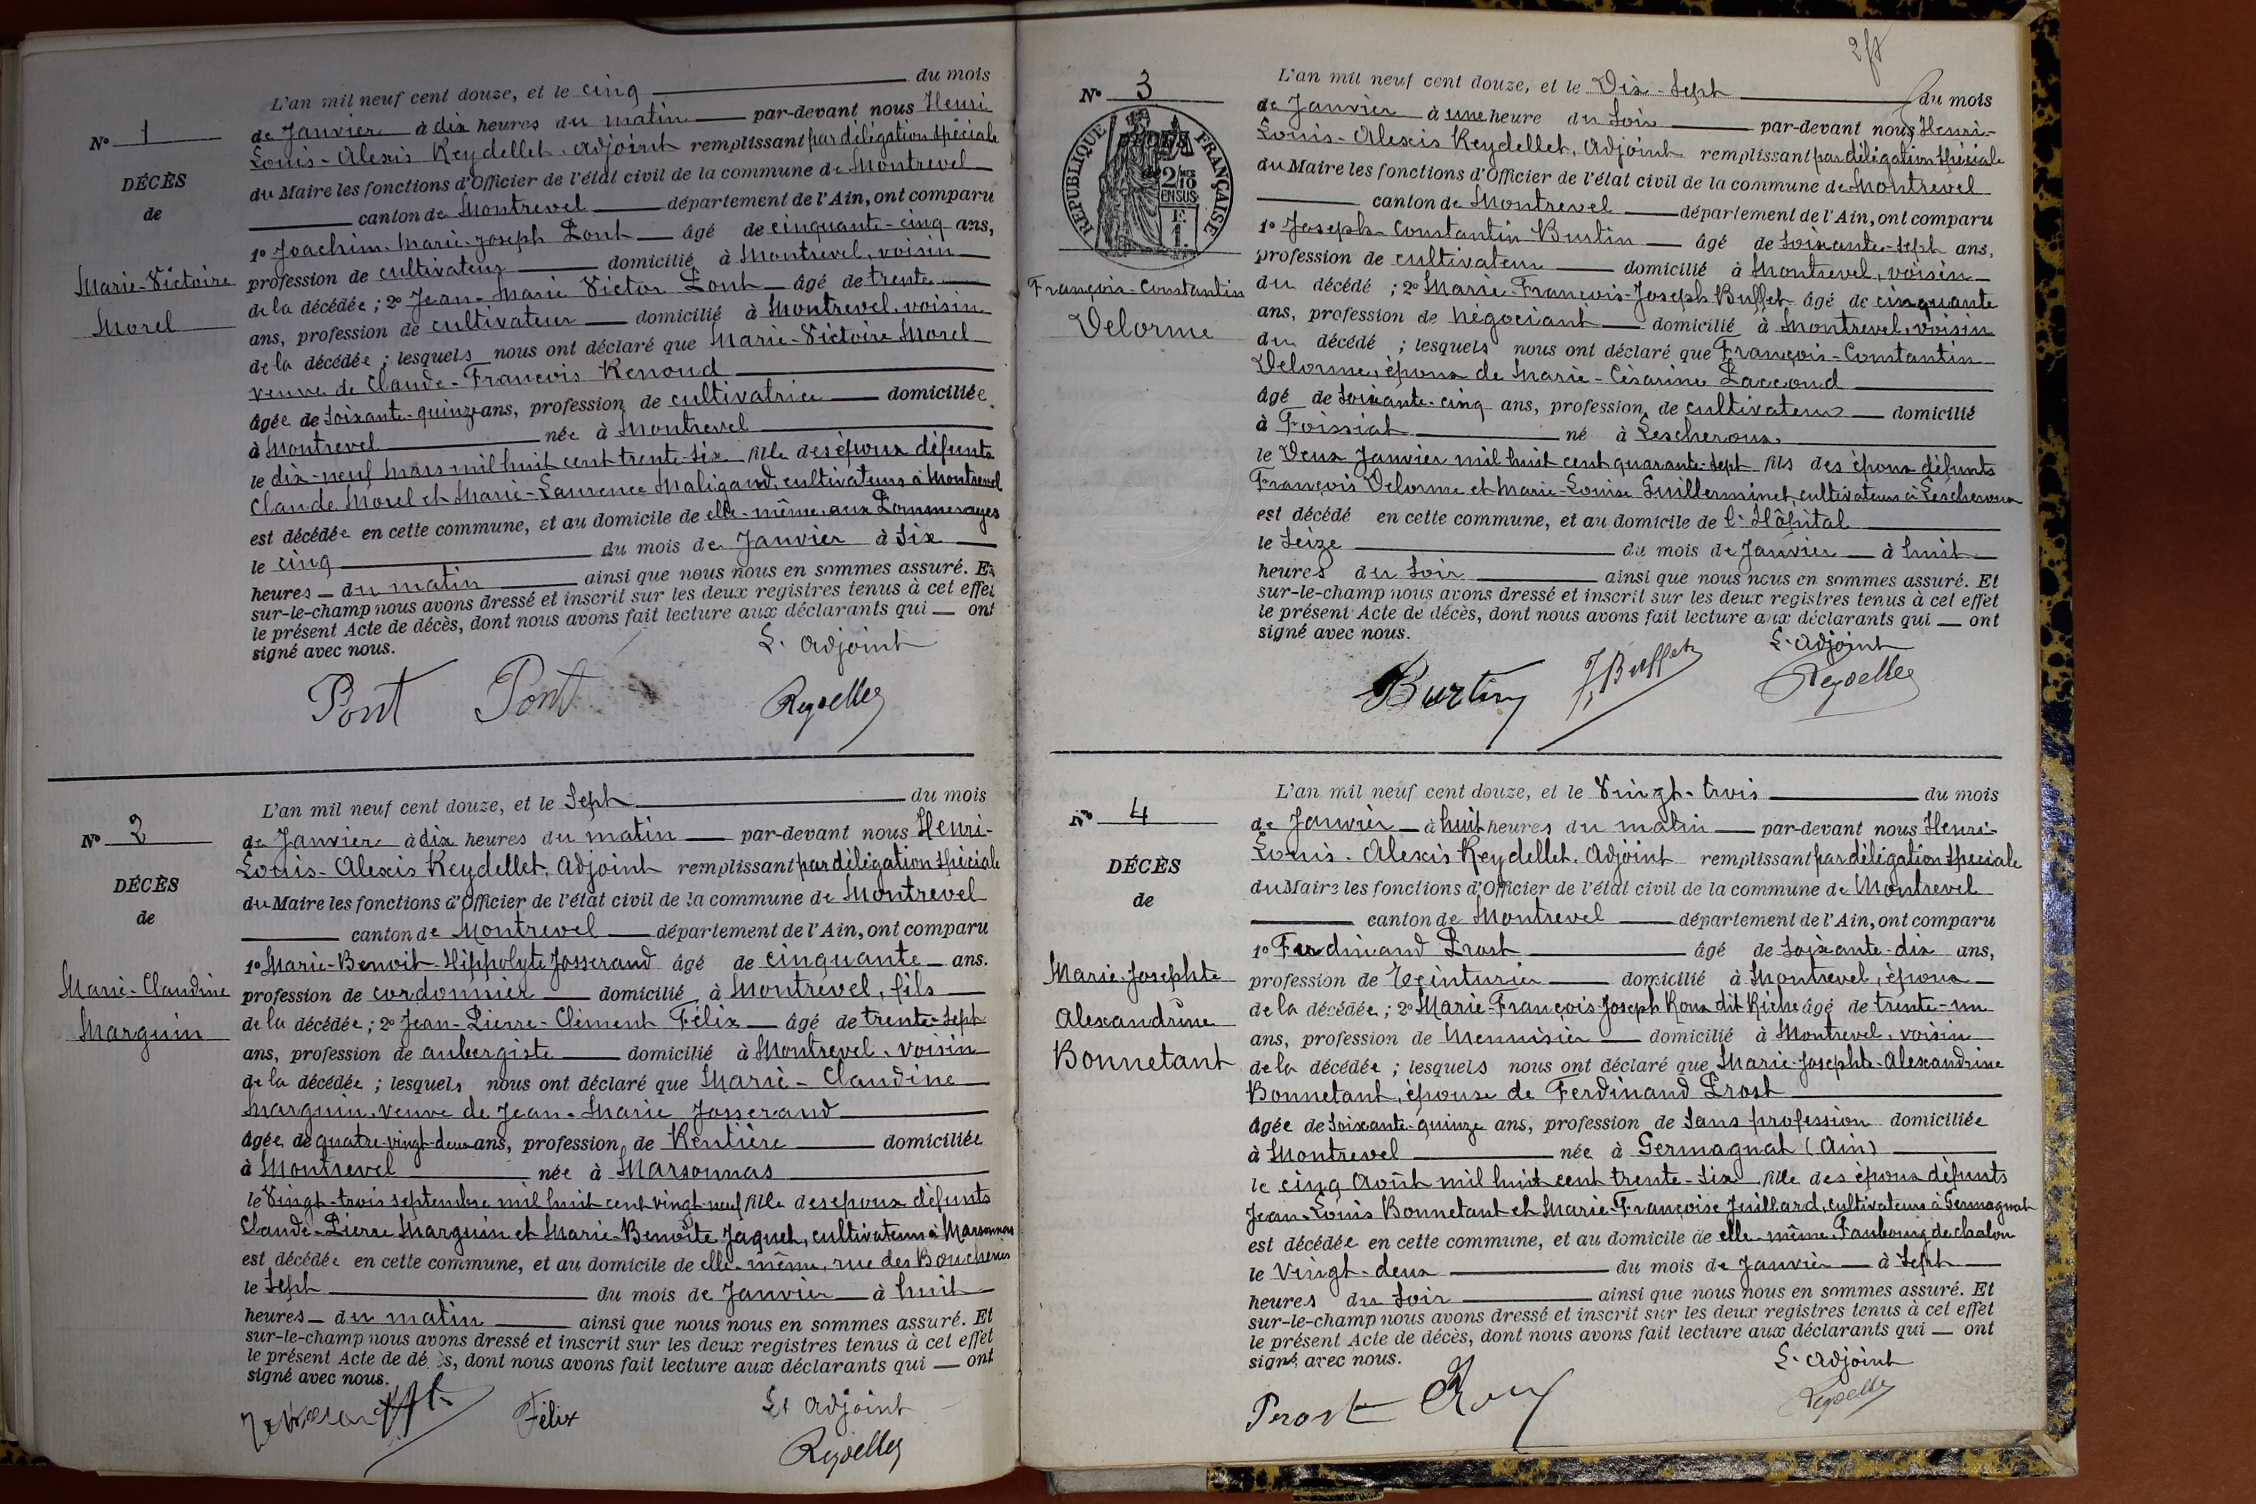 L'an mil neuf cent douze, et le cinq du mois
de Janvier à dix heures du matin par-devant nous Henri
Louis-Alexis Reydellet, adjoint remplissant par délégation spéciale
du Maire les fonctions d'Officier de l'état civil de la commune de Montrevel
canton de Montrevel département de l'Ain, ont comparu
1° Joachim-Marie-Joseph Pont âgé de cinquante-cinq ans,
profession de cultivateur domicilié à Montrevel, voisin
de la décédée ; 2° Jean-Marie Victor Pont âgé de trente
ans, profession de cultivateur domicilié à Montrevel, voisin
de la décédée ; lesquels nous ont déclaré que Marie-Victoire Morel
veuve de Claude-François Renoud
âgée de soixante-quinze ans, profession de cultivatrice domiciliée
à Montrevel née à Montrevel
le dix-neuf mars mil huit cent trente-six fille des époux défunts
Claude Morel et Marie-Laurence Maligand, cultivateurs à Montrevel
est décédée en cette commune, et au domicile de elle-même, aux
le cinq du mois de Janvier à six
heures du matin ainsi que nous nous en sommes assuré. Et
sur-le-champ nous avons dressé et inscrit sur les deux registres tenus à cet effet
le présent Acte de décès, dont nous avons fait lecture aux déclarants qui ont
signé avec nous.
L'adjoint
Pont Pont Reydellet
N° 1
DÉCÈS
de
Marie-Victoire
Morel
L'an mil neuf cent douze, et le sept du mois
de Janvier à dix heures du matin par-devant nous Henri-
Louis-Alexis Reydellet, adjoint remplissant par délégation spéciale
du Maire les fonctions d'Officier de l'état civil de la commune de Montrevel
canton de Montrevel département de l'Ain, ont comparu
1° Marie-Benoit-Hippolyte Josserand âgé de cinquante ans.
profession de cordonnier domicilié à Montrevel, fils
de la décédée ; 2° Jean-Pierre-Clément Félix âgé de trente-sept
ans, profession de aubergiste domicilié à Montrevel, voisin
de la décédée ; lesquels nous ont déclaré que Marie-Claudine
Marguin, veuve de Jean-Marie Josserand
âgée de quatre-vingt-deux ans, profession de Rentière domiciliée
à Montrevel née à Marsonnas
le vingt-trois septembre mil huit cent vingt-neuf fille des époux défunts
Claude-Pierre Marguin et Marie-Benoîte Jaquet, cultivateurs à Marsonnas
est décédée en cette commune, et au domicile de elle-même, rue des Boucheries
le sept du mois de Janvier à huit
heures du matin ainsi que nous nous en sommes assuré. Et
sur-le-champ nous avons dressé et inscrit sur les deux registres tenus à cet effet
le présent Acte de décès, dont nous avons fait lecture aux déclarants qui ont
signé avec nous.
L'adjoint
Félix Reydellet
N° 2
DÉCÈS
de
Marie-Claudine
Marguin
L'an mil neuf cent douze, et le Dix-sept du mois
de Janvier à une heure du soir par-devant nous Henri-
Louis-Alexis Reydellet, adjoint remplissant par délégation spéciale
du Maire les fonctions d'Officier de l'état civil de la commune de Montrevel
canton de Montrevel département de l'Ain, ont comparu
1° Joseph-Constantin Burtin âgé de soixante-sept ans,
profession de cultivateur domicilié à Montrevel, voisin
du décédé ; 2° Marie-François-Joseph Buffet âgé de cinquante
ans, profession de négociant domicilié à Montrevel, voisin
du décédé ; lesquels nous ont déclaré que François-Constantin
Delorme, époux de Marie-Césarine Paccoud
âgé de soixante-cinq ans, profession de cultivateur domicilié
à Foissiat né à Lescheroux
le Deux Janvier mil huit cent quarante-sept fils des époux défunts
François Delorme et Marie-Louise Guillerminet, cultivateurs à Lescheroux
est décédé en cette commune, et au domicile de l'Hôpital
le seize du mois de Janvier à huit
heures du soir ainsi que nous nous en sommes assuré. Et
sur-le-champ nous avons dressé et inscrit sur les deux registres tenus à cet effet
le présent Acte de décès, dont nous avons fait lecture aux déclarants qui ont
signé avec nous.
L'adjoint
Burtin J. Buffet Reydellet
N° 3
RÉPUBLIQUE FRANÇAISE
2/10
EN SUS
François-Constantin
Delorme
L'an mil neuf cent douze, et le Vingt-trois du mois
de Janvier à huit heures du matin par-devant nous Henri-
Louis-Alexis Reydellet, adjoint remplissant par délégation spéciale
du Maire les fonctions d'Officier de l'état civil de la commune de Montrevel
canton de Montrevel département de l'Ain, ont comparu
1° Ferdinand Prost âgé de soixante-dix ans,
profession de teinturier domicilié à Montrevel, époux
de la décédée ; 2° Marie-François-Joseph Roux dit Riche âgé de trente-un
ans, profession de menuisier domicilié à Montrevel, voisin
de la décédée ; lesquels nous ont déclaré que Marie-Josephte-Alexandrine
Bonnetant, épouse de Ferdinand Prost
âgée de soixante-quinze ans, profession de sans profession domiciliée
à Montrevel née à Germagnat (Ain)
le cinq Août mil huit cent trente-six fille des époux défunts
Jean-Louis Bonnetant et Marie-Françoise Juillard, cultivateurs à Germagnat
est décédée en cette commune, et au domicile de elle-même, Faubourg de chalon
le Vingt-deux du mois de Janvier à sept
heures du soir ainsi que nous nous en sommes assuré. Et
sur-le-champ nous avons dressé et inscrit sur les deux registres tenus à cet effet
le présent Acte de décès, dont nous avons fait lecture aux déclarants qui ont
signé avec nous.
L'adjoint
Prost Roux Reydellet
N° 4
DÉCÈS
de
Marie-Josephte
Alexandrine
Bonnetant